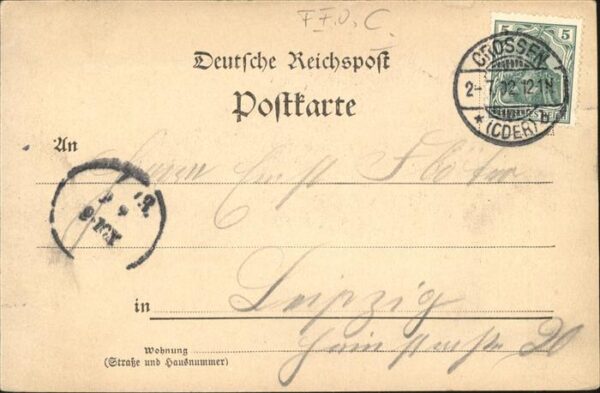 F F. v. C.
5 5
CROSSEN
2-7.02.12-1N
* (ODER) b
Deutsche Reichspost
Postkarte
An
Herrn Ernst
R.
in Leipzig
Wohnung
(Straße und Hausnummer)
Hainstrasse 20